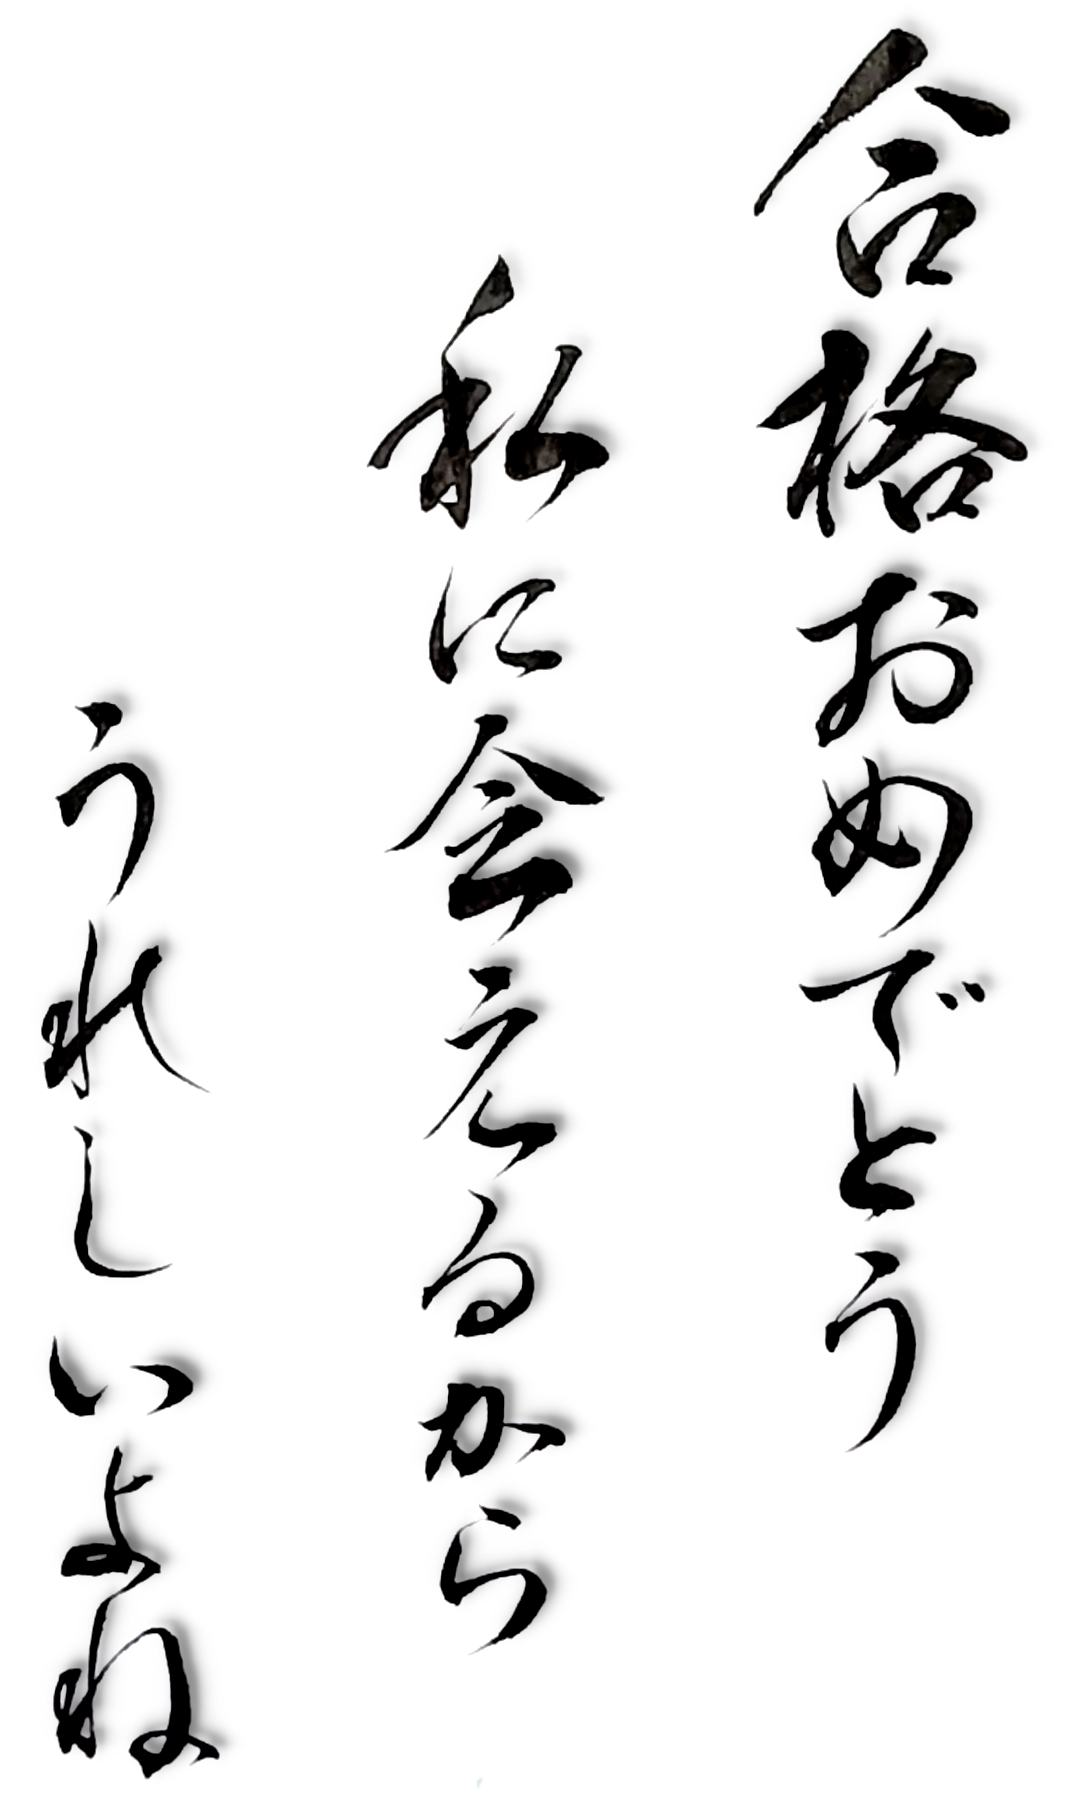 合格おめでとう
私に会えるから
うれしいよね